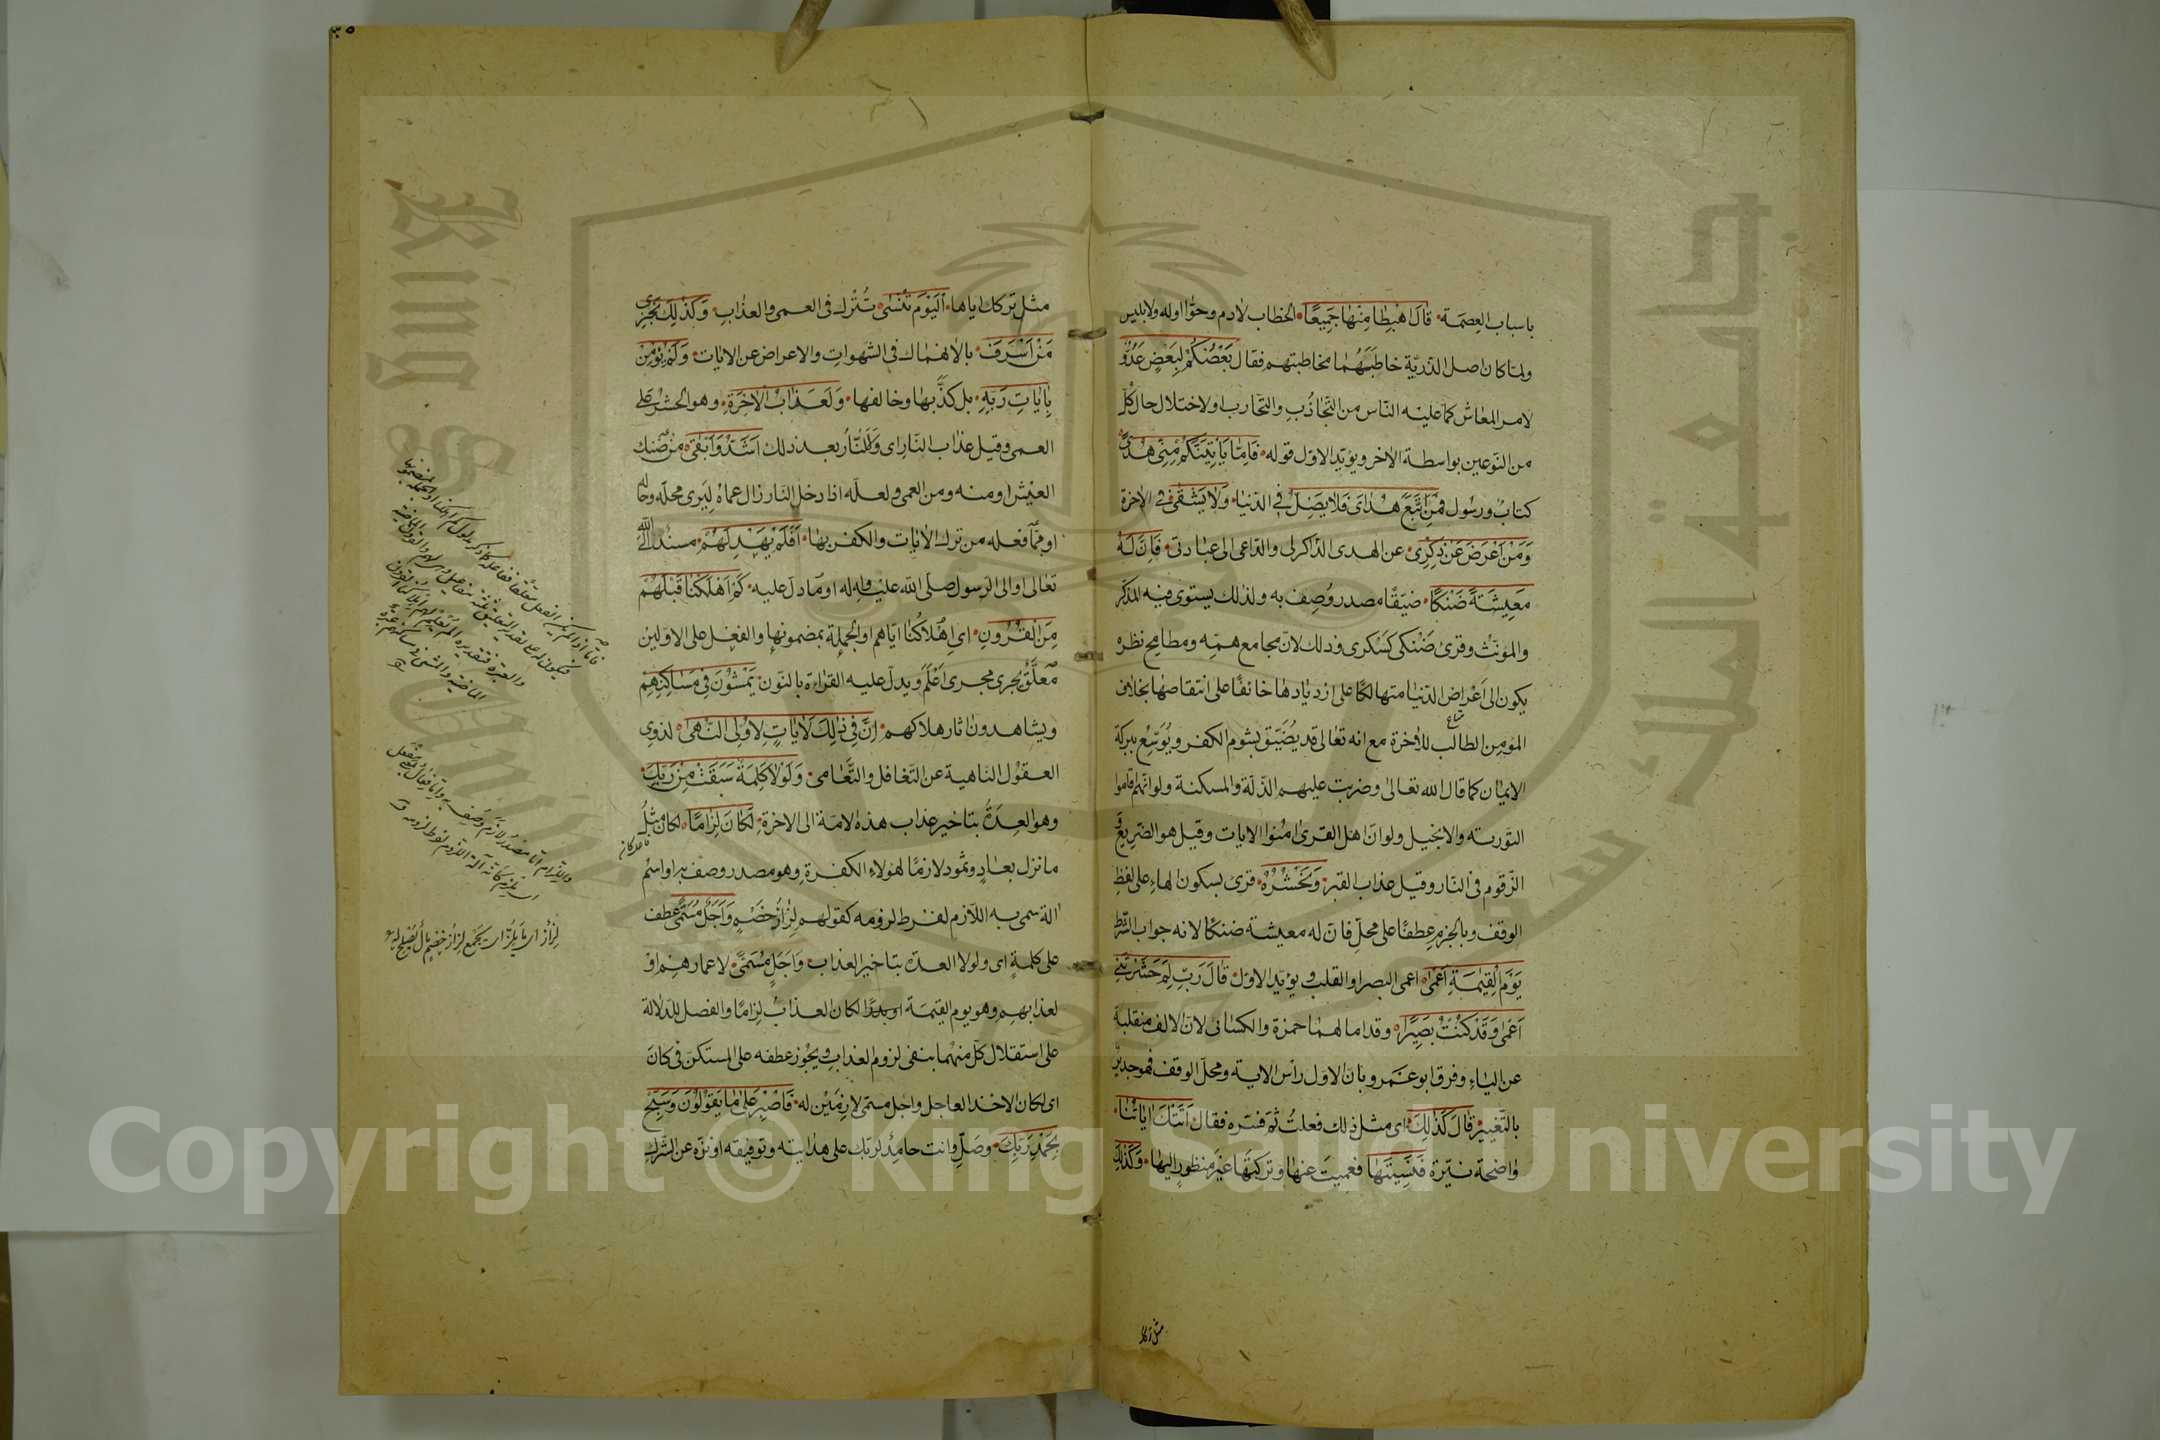 باسباب العصمة قَالَ اهْبِطَا مِنْهَا جَمِيعًا الخطاب لادم وحوّا اوله ولابليس
ولمّا كان اصل الذريّة خاطبَهُما مخاطبتهم فقال بَعْضُكُمْ لِبَعْضٍ عَدُوٌّ
لامر المعاش كما عليه الناس من التجاذُبِ والتحارب اولاختلال حال كلّ
من النّوعين بواسطة الاخر ويؤيّد الاوّل قوله فَاِمَّا يَأْتِيَنَّكُمْ مِنِّي هُدًى
كتابٌ ورسول فَمَنِ اتَّبَعَ هُدَايَ فَلَا يَضِلُّ في الدّنيا وَلَا يَشْقَى في الاخرة
وَمَنْ اَعْرَضَ عَنْ ذِكْرِي عن الهدى الذّاكر لى والدّاعى الى عبادتى فَاِنَّ لَهُ
مَعِيشَةً ضَنْكًا ضيّقًا مصدر وُصِف به ولذلك يستوى فيه المذكّر
والمؤنّث وقرئ ضَنْكى كسَكرى وذلك لانّ مجامع همّه ومطامح نظره
يكون الى اَعْراض الدّنيا متهالكًا على ازديادها خائفًا على انتقاصها بخلاف
المؤمن الطالب للاخرة مع انه تعالى قد يُضَيّق بشوم الكفر ويُوَسّع ببركة
الايمان كما قال الله تعالى وضربت عليهم الذّلّة والمسكنة ولوانّهم اقاموا
التوريته والانجيل ولوانّ اهل القرى امنوا الايات وقيل هو الضّريع و
الزّقوم في النّار وقيل عذاب القبر وَنَحْشُرُهُ قرئ بسكون الهاء على لفظ
الوقف وبالجزم عطفًا على محلّ فانّ له معيشة ضنكًا لانه جواب الشّرط
يَوْمَ الْقِيٰمَةِ اَعْمٰى اعمى البصر او القلب ويؤيّد الاوّل قَالَ رَبِّ لِمَ حَشَرْتَنِي
اَعْمٰى وَقَدْ كُنْتُ بَصِيرًا وقد امالهما حمزة والكسائى لانّ الالف منقلبة
عن الياء وفرق ابو عمرو بان الاول رأس الاية ومحلّ الوقف فهو جدير
بالتّغيير قَالَ كَذٰلِكَ اى مثل ذلك فعلتُ ثم فسّره فقال اَتَتْكَ اٰيَاتُنَا
واضحة نيّرة فَنَسِيتَهَا فعميتَ عنها وتركتَها غير منظورٍ اليها وَكَذٰلِكَ
مثل تركك
مثل تركك اياها الْيَوْمَ تُنْسٰى تُتْرك فى العمى والعذاب وَكَذٰلِكَ نَجْزِي
مَنْ اَسْرَفَ بالانهماك فى الشهوات والاعراض عن الايات وَلَمْ يُؤْمِنْ
بِاٰيَاتِ رَبِّهِ بل كذّب بها وخالفها وَلَعَذَابُ الْاٰخِرَةِ وهو الحشر على
العمى وقيل عذاب النّار اى وَلَلنّارُ بعد ذلك اَشَدُّ وَاَبْقٰى من ضنك
العيش او منه ومن العمى ولعلّه اذا دخل النار زال عماه ليَرى محلّه وحاله
او ممّا فعله من ترك الايات والكفر بها اَفَلَمْ يَهْدِ لَهُمْ مسند الى الله
تعالى او الى الرسول صلّى الله عليه واله او ما دلّ عليه كَمْ اَهْلَكْنَا قَبْلَهُمْ
مِنَ الْقُرُونِ اى اِهْلاكُنا ايّاهم او الجملة بمضمونها والفعل على الاوّلين
معلّق يجرى مجرى اَعْلَم ويدلّ عليه القراءة بالنّون يَمْشُونَ فِي مَسَاكِنِهِمْ
ويشاهدون اثار هلاكهم اِنَّ فِي ذٰلِكَ لَاٰيَاتٍ لِاُولِي النُّهٰى لذوى
العقول الناهية عن التّغافل والتَّعامى وَلَوْلَا كَلِمَةٌ سَبَقَتْ مِنْ رَبِّكَ
وهو العِدَةُ بتاخير عذاب هذه الامّة الى الاخرة لَكَانَ لِزَامًا لكان مثلُ
ما نزل بعادٍ وثمود لازمًا لهؤلاء الكفرة وهو مصدر وصف به او اسْم
الة سمى به اللازم لفرط لزومه كقولهم لِزازُ خَصْمٍ وَاَجَلٌ مُسَمًّى عطف
على كلمة اى ولولا العدة بتاخير العذاب وَاَجَلٌ مُسَمًّى لاعمارهم او
لعذابهم وهو يوم القيٰمة او بدر لكان العذابُ لِزامًا والفصل للدّلالة
على استقلال كلّ منهما بنفى لزوم العذاب ويجوز عطفه على المستكنّ فى كان
اى لكان الاخذ العاجل واجل مسمى لازِمَيْنِ له فَاصْبِرْ عَلٰى مَا يَقُولُونَ وَسَبِّحْ
بِحَمْدِ رَبِّكَ وصَلِّ وانت حامِدٌ لربّك على هدايته وتوفيقه او نزّه عن الشّرك
Copyright © King Saud University
King Saud University
جامعة الملك سعود